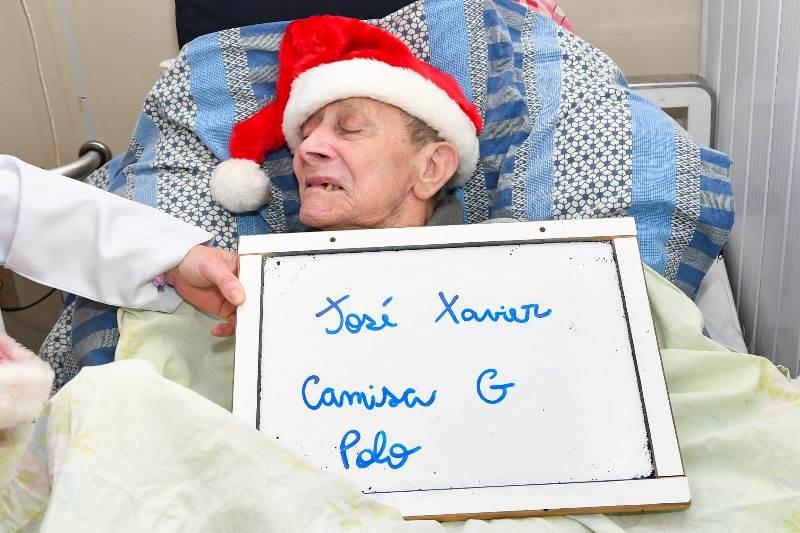 José Xavier
Camisa G
Polo